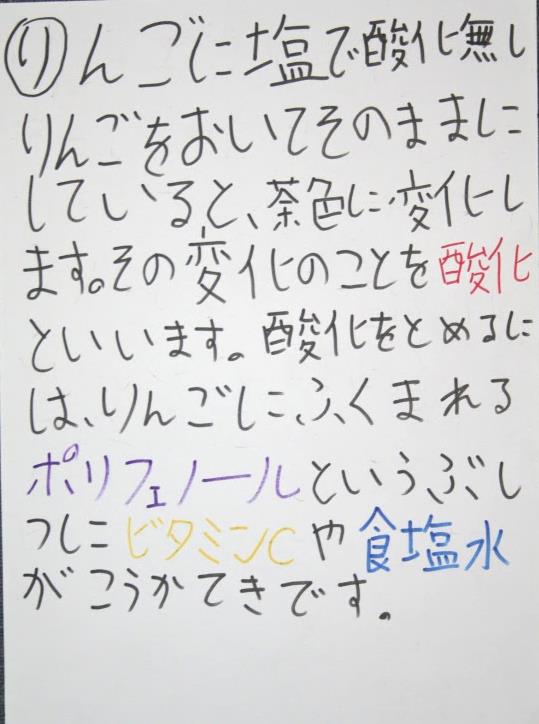 りんごに塩で酸化無し
りんごをおいてそのままに
していると、茶色に変化し
ます。その変化のことを酸化
といいます。酸化をとめるに
は、りんごにふくまれる
ポリフェノールというぶし
つにビタミンCや食塩水
がこうかてきです。